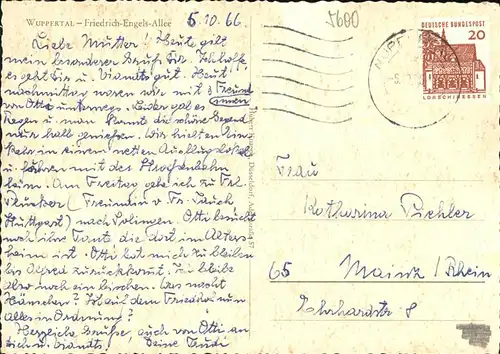 WUPPERTAL – Friedrich-Engels-Allee
5.10.66
5600
Liebe Mutter! Heute gilt
mein besonderer Gruß Dir. Ich hoffe
es geht Dir u. gut. Heut'
nachmittag waren wir mit 3 Freund
von Otti unterwegs. Leider gab es innen
Regen u. man konnt die schöne Gegend
nur halb genießen. Wir hielten Ein-
kehr in einem netten Ausflugslokal
u. fuhren mit der
heim. Am Freitag gehe ich zu Fr.
(Freundin v. Fr.
Stuttgart) nach Solingen. Otti besucht
noch ihre Tante die dort im Alters-
heim ist. Otti bat mich zu bleiben
bis Alfred zurückkommt. So bleibe
also noch ein bischen. Was macht
Hänschen? Ist auf dem Friedhof nun
alles in Ordnung?
Herzliche Grüße, auch von Otti an
dich u. Deine
DEUTSCHE BUNDESPOST
20
LORSCH/HESSEN
Frau
Katharina Pichler
65 Mainz/Rhein
Ehrhardstr. 8